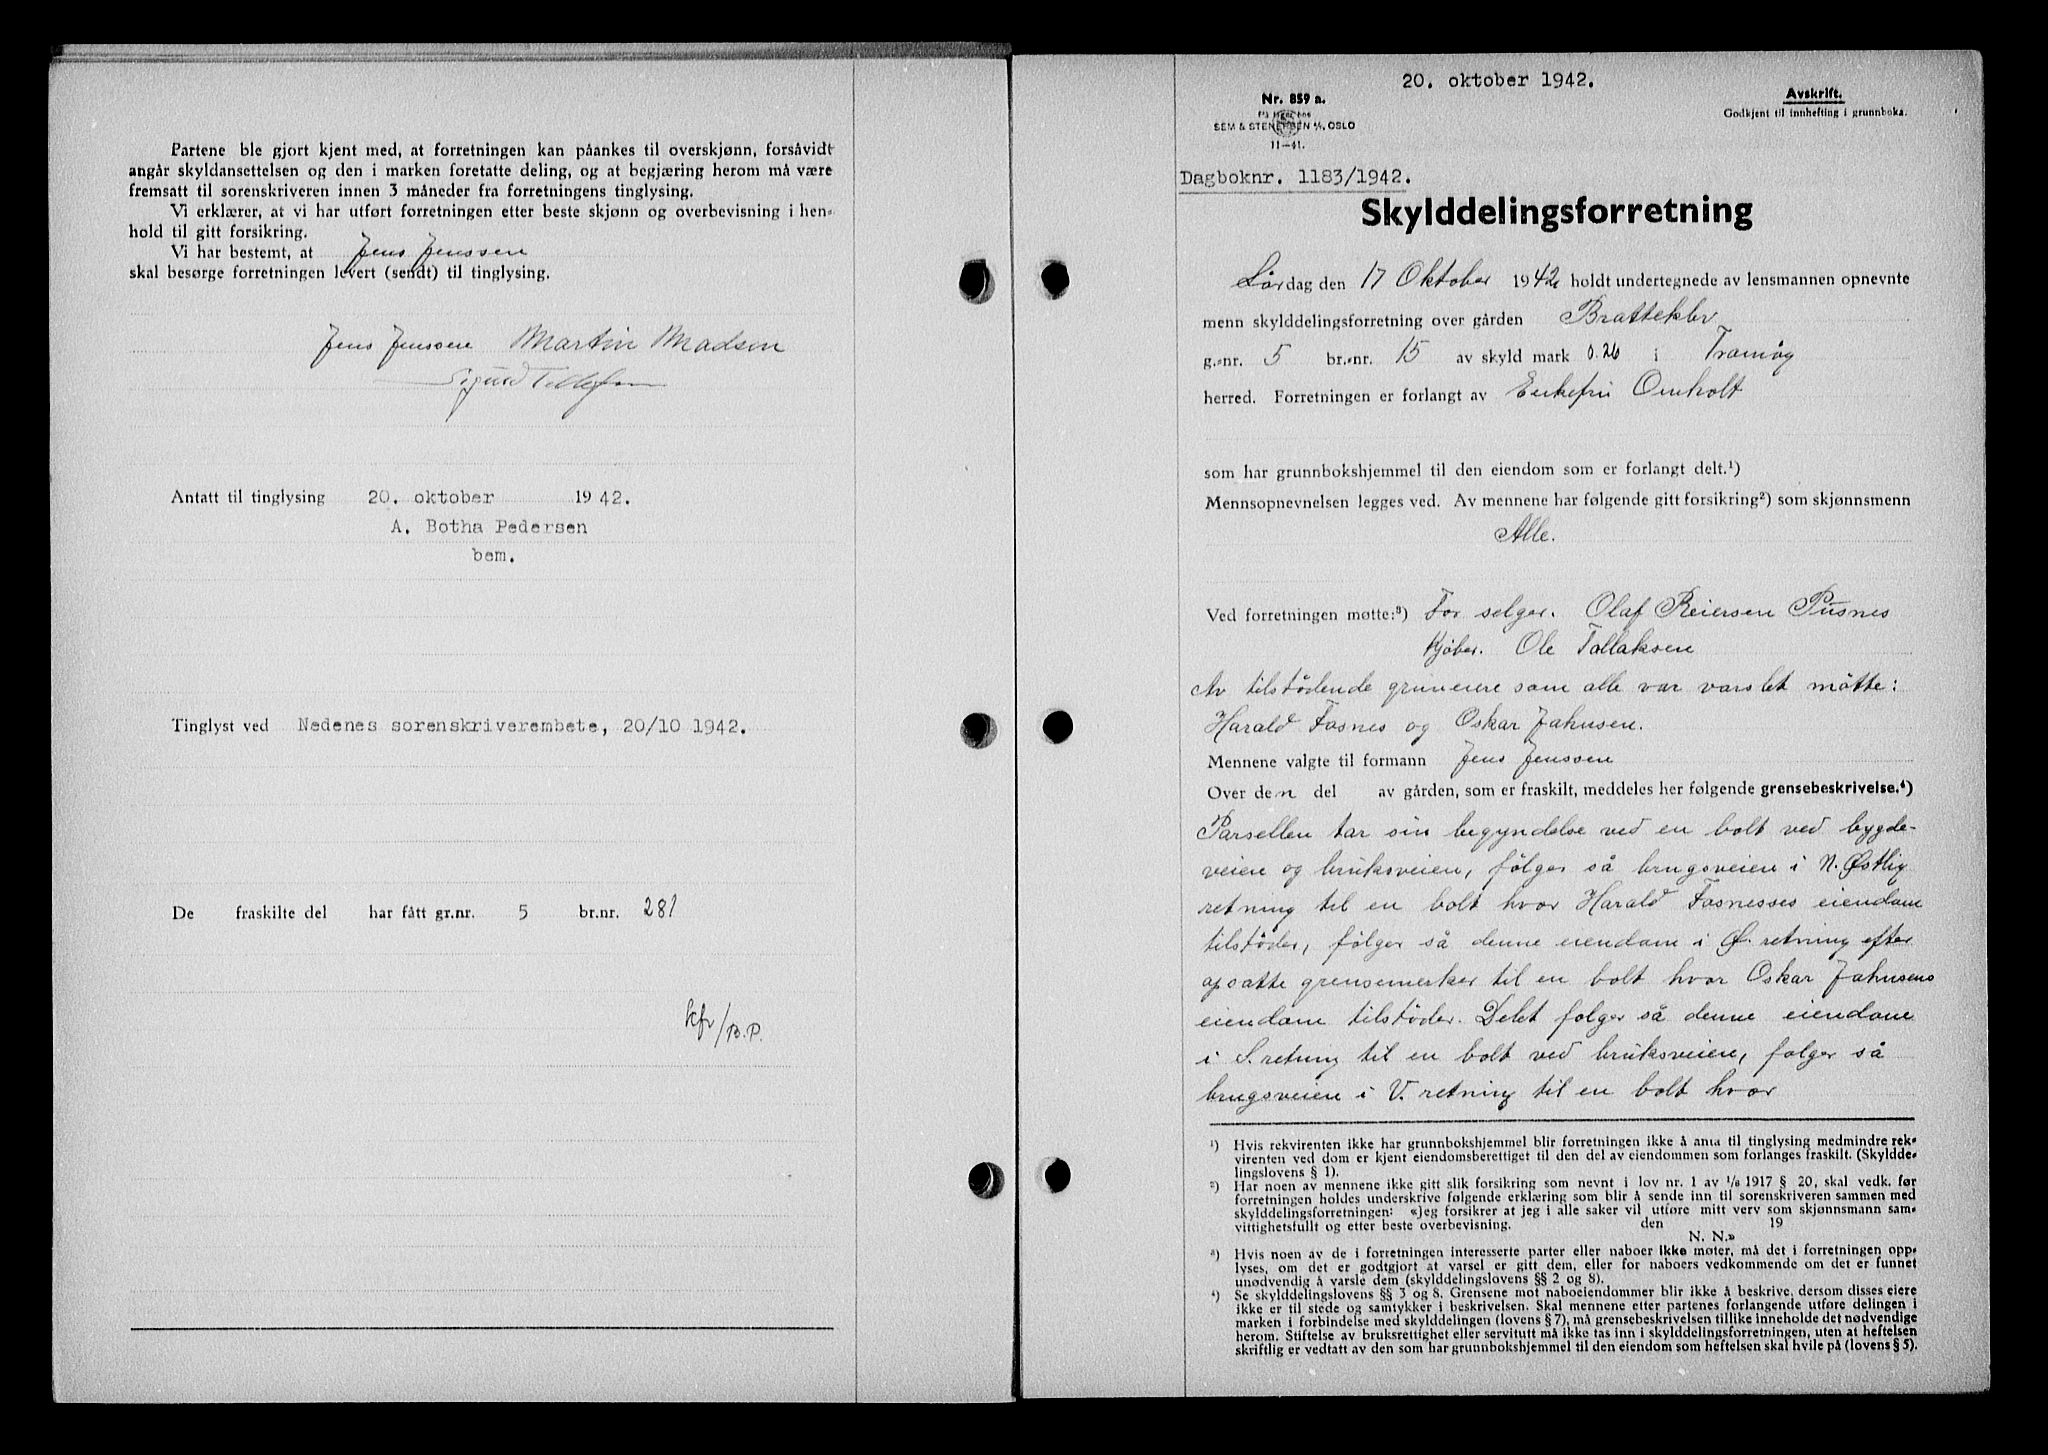 Partene ble gjort kjent med, at forretningen kan påankes til overskjønn, forsåvidt
angår skyldansettelsen og den i marken foretatte deling, og at begjæring herom må være
fremsatt til sorenskriveren innen 3 måneder fra forretningens tinglysing.
Vi erklærer, at vi har utført forretningen etter beste skjønn og overbevisning i hen-
hold til gitt forsikring.
Vi har bestemt, at Jens Jenssen
skal besørge forretningen levert (sendt) til tinglysing.
Jens Jenssen Martin Madsen
Sigurd Tellefsen
Antatt til tinglysing 20. oktober 1942.
A. Botha Pedersen
bem.
Tinglyst ved Nedenes sorenskriverembete, 20/10 1942.
De fraskilte del har fått gr.nr. 5 br.nr. 281
kfr/B.P.
20. oktober 1942.
Nr. 859 a.
SEM & STENERSEN A/S, OSLO
11-41.
Avskrift.
Godkjent til innhefting i grunnboka.
Dagboknr. 1183/1942.
Skylddelingsforretning
Lørdag den 17 Oktober 1942 holdt undertegnede av lensmannen opnevnte
menn skylddelingsforretning over gården Bratteklev
g.-nr. 5 br.-nr. 15 av skyld mark 0.26 i Tromøy
herred. Forretningen er forlangt av Enkefru Omholt
som har grunnbokshjemmel til den eiendom som er forlangt delt.¹)
Mennsopnevnelsen legges ved. Av mennene har følgende gitt forsikring²) som skjønnsmenn
Alle.
Ved forretningen møtte:³) For selger. Olaf Reiersen Pusnes
kjöber. Ole Tallaksen
Av tilstödende grunneiere som alle var varslet måtte:
Harald Fosnes og Oskar Jahnsen.
Mennene valgte til formann Jens Jenssen
Over den del av gården, som er fraskilt, meddeles her følgende grensebeskrivelse.⁴)
Parsellen tar sin begyndelse ved en bolt ved bygde-
veien og bruksveien, følger så brugsveien i N. Østlig
retning til en bolt hvor Harald Fosnesses eiendom
tilstöder, følger så denne eiendom i Ø. retning efter
opsatte grensemerker til en bolt hvor Oskar Jahnsens
eiendom tilstöder. Delet følger så denne eiendom
i S. retning til en bolt ved bruksveien, følger så
brugsveien i V. retning til en bolt hvor
¹) Hvis rekvirenten ikke har grunnbokshjemmel blir forretningen ikke å anta til tinglysing medmindre rek-
virenten ved dom er kjent eiendomsberettiget til den del av eiendommen som forlanges fraskilt. (Skyldde-
lingslovens § 1).
²) Har noen av mennene ikke gitt slik forsikring som nevnt i lov nr. 1 av 1/6 1917 § 20, skal vedk. før
forretningen holdes underskrive følgende erklæring som blir å sende inn til sorenskriveren sammen med
skylddelingsforretningen: «Jeg forsikrer at jeg i alle saker vil utføre mitt verv som skjønnsmann sam-
vittighetsfullt og etter beste overbevisning. den 19
N. N.»
³) Hvis noen av de i forretningen interesserte parter eller naboer ikke møter, må det i forretningen opp-
lyses, om det er godtgjort at varsel er gitt dem, eller for naboers vedkommende om det er funnet
unødvendig å varsle dem (skylddelingslovens §§ 2 og 8).
⁴) Se skylddelingslovens §§ 3 og 8. Grensene mot naboeiendommer blir ikke å beskrive, dersom disses eiere
ikke er til stede og samtykker i beskrivelsen. Skal mennene etter partenes forlangende utføre delingen i
marken i forbindelse med skylddelingen (lovens § 7), må grensebeskrivelsen tillike inneholde det nødvendige
herom. Stiftelse av bruksrettighet eller servitutt må ikke tas inn i skylddelingsforretningen, uten at heftelsen
skriftlig er vedtatt av den som har grunnbokshjemmel til den eiendom som heftelsen skal hvile på (lovens § 5).